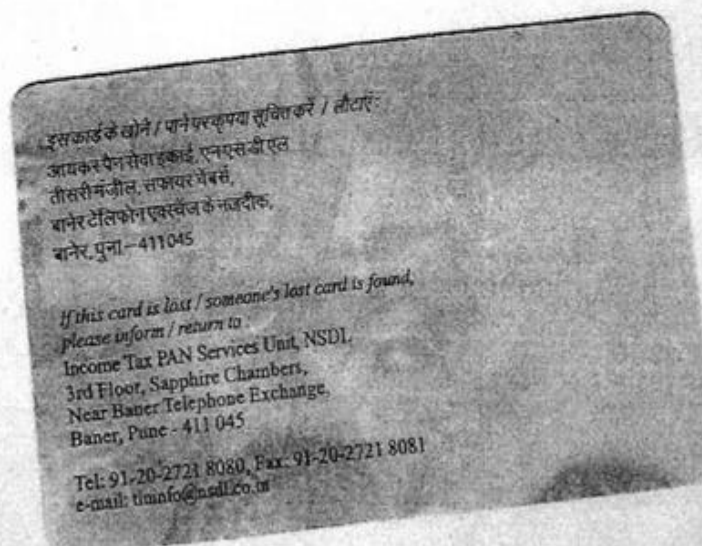 इस कार्ड के खोने / पाने पर कृपया सूचित करें / लौटाएं :
आयकर पैन सेवा इकाई, एनएसडीएल
तीसरी मंज़ील, सफायर चेंबर्स,
बानेर टेलिफोन एक्स्चेंज के नजदीक,
बानेर, पुना – 411045
If this card is lost / someone's lost card is found,
please inform / return to :
Income Tax PAN Services Unit, NSDL
3rd Floor, Sapphire Chambers,
Near Baner Telephone Exchange,
Baner, Pune - 411 045
Tel: 91-20-2721 8080, Fax: 91-20-2721 8081
e-mail: tininfo@nsdl.co.in